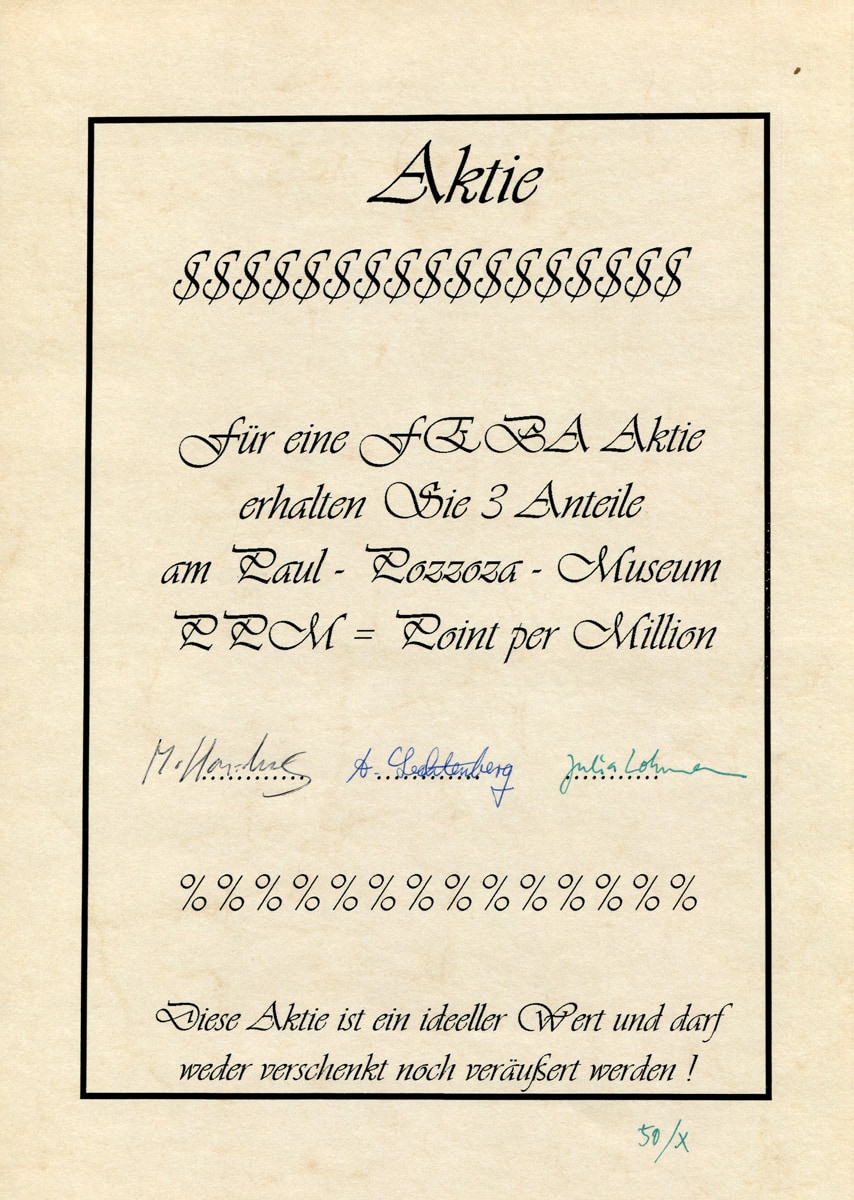 Aktie
$$$$$$$$$$$$$$$$$
Für eine FEBA Aktie
erhalten Sie 3 Anteile
am Paul - Pozzoza - Museum
PPM = Point per Million
A. Lechtenberg Julia Lohmann
% % % % % % % % % % % % % %
Diese Aktie ist ein ideeller Wert und darf
weder verschenkt noch veräußert werden !
50/X